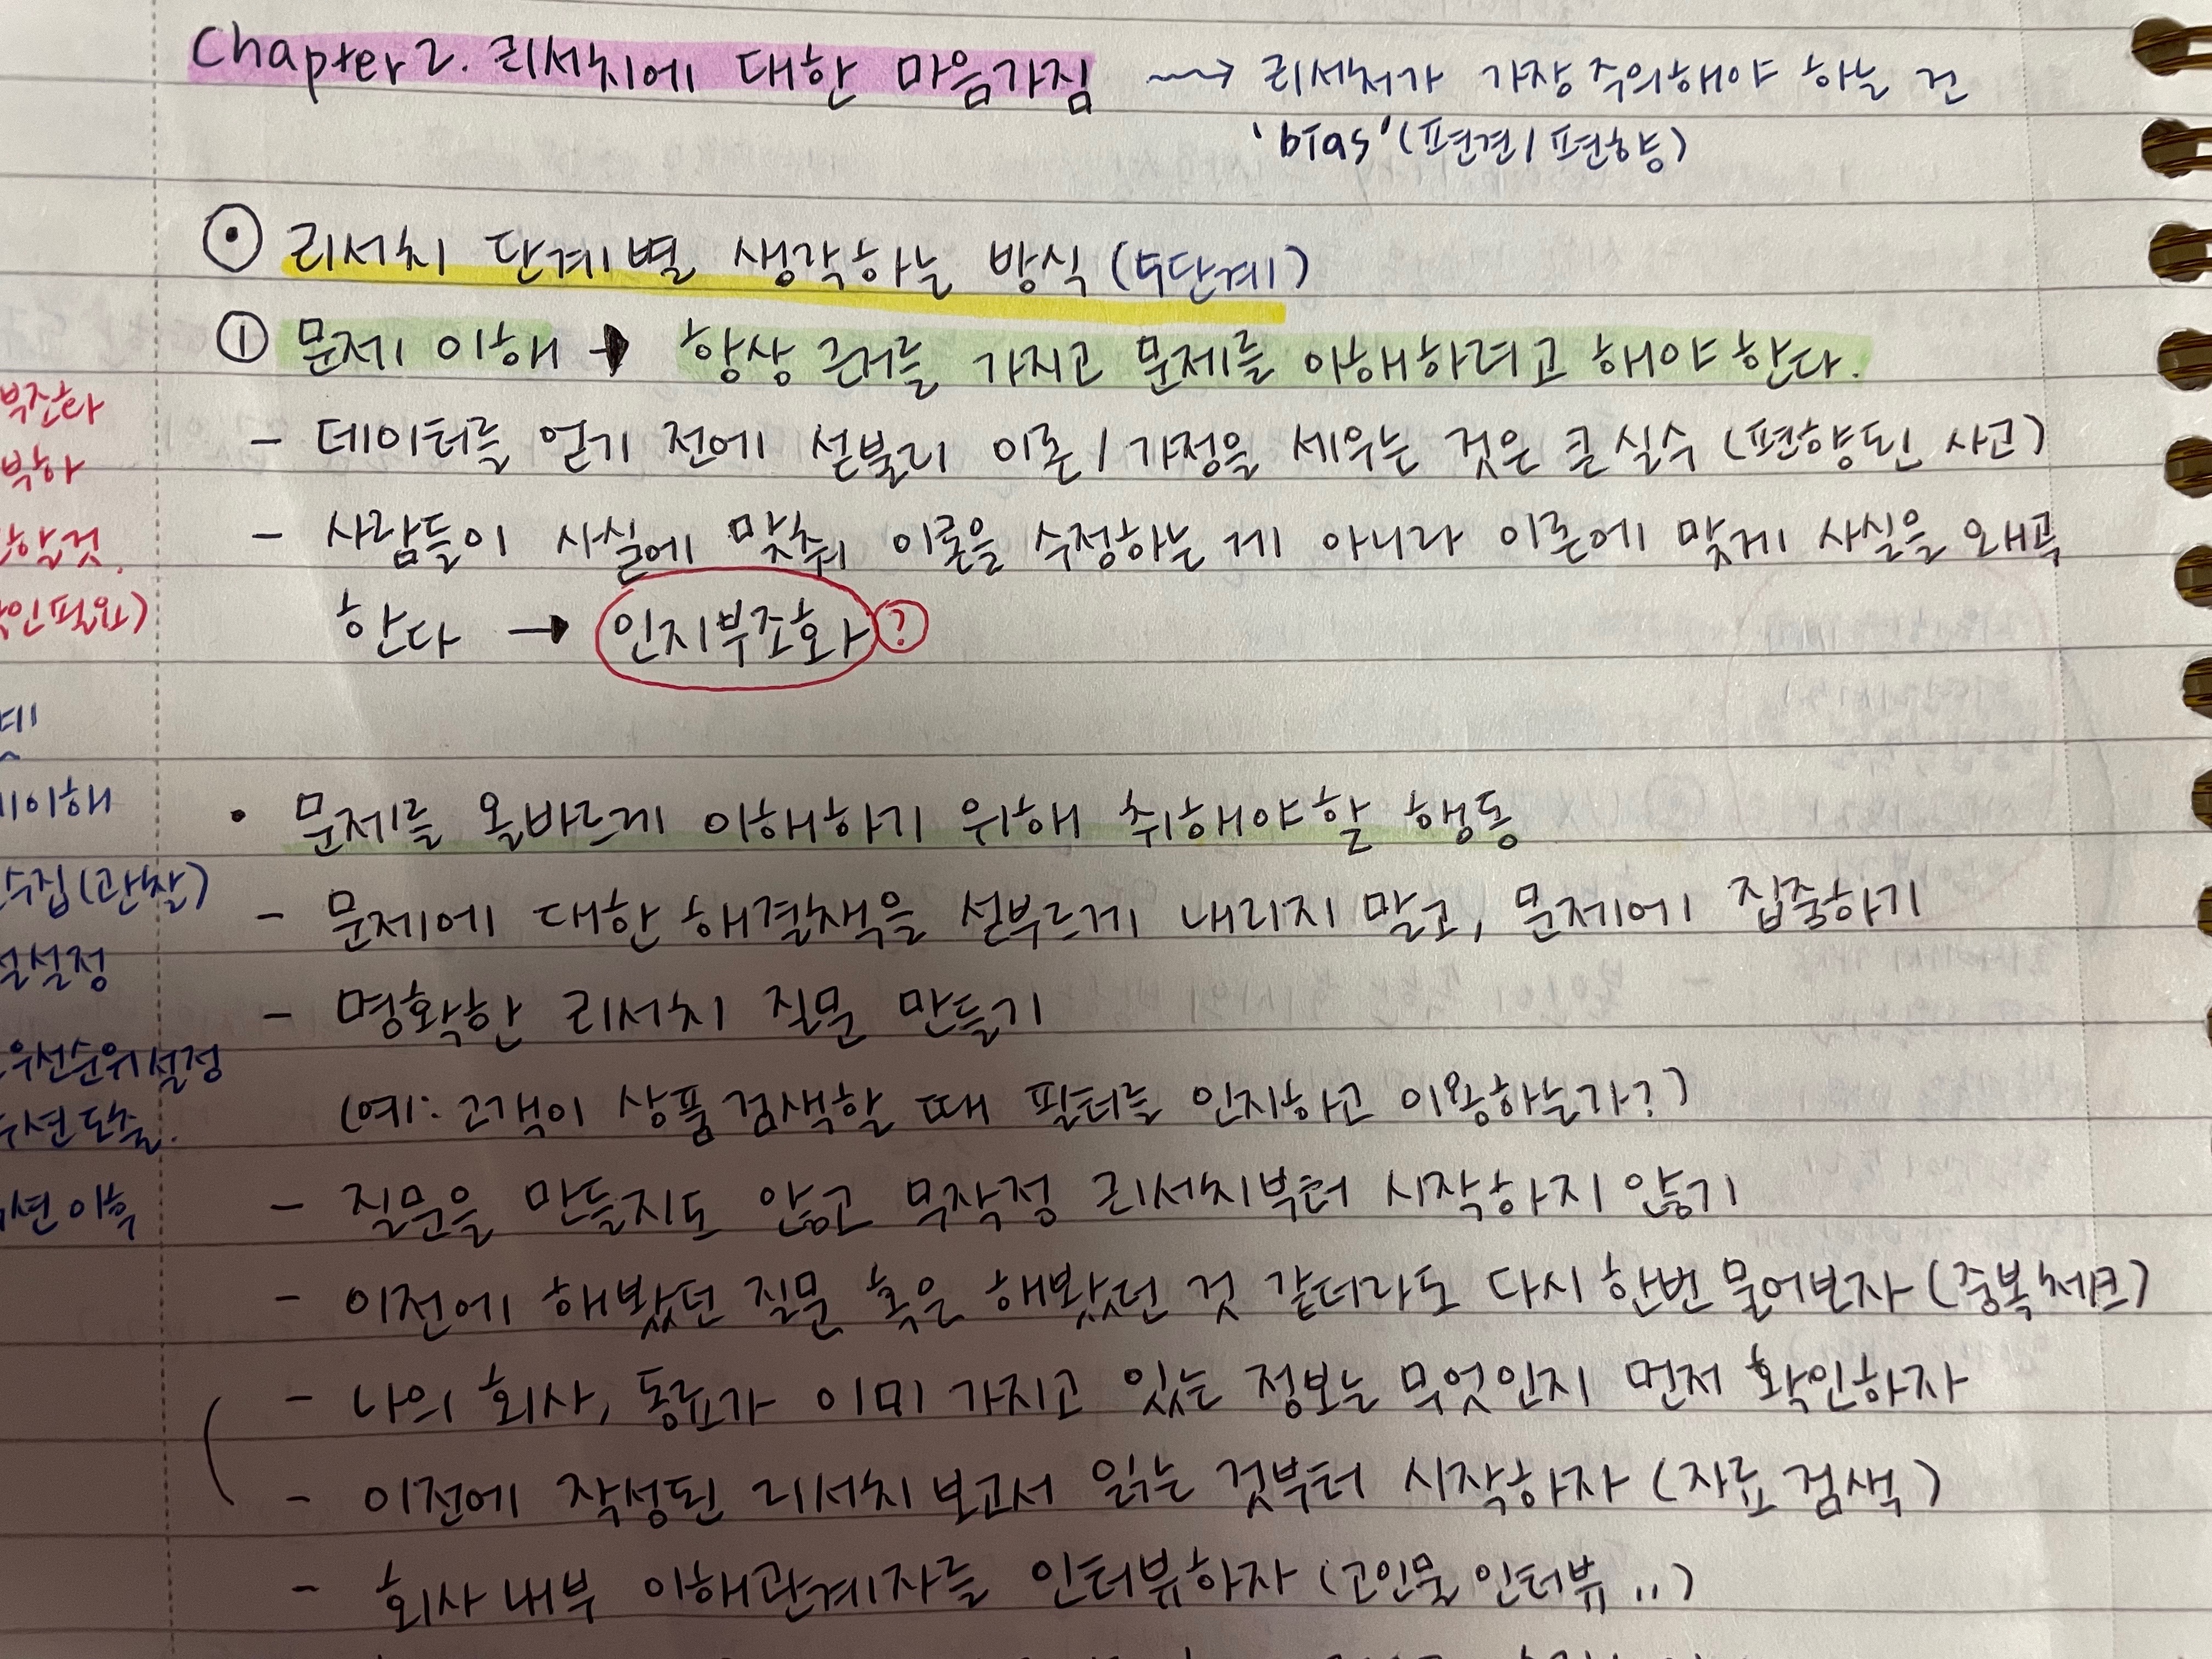 Chapter 2. 리서치에 대한 마음가짐 ~~> 리서처가 가장 주의해야 하는 건
'bias' (편견/편향)
리서치 단계별 생각하는 방식 (5단계)
① 문제 이해 → 항상 근거를 가지고 문제를 이해하려고 해야 한다.
- 데이터를 얻기 전에 섣불리 이론/가정을 세우는 것은 큰 실수 (편향된 사고)
- 사람들이 사실에 맞춰 이론을 수정하는 게 아니라 이론에 맞게 사실을 왜곡
한다 → 인지부조화 ?
• 문제를 올바르게 이해하기 위해 취해야 할 행동
- 문제에 대한 해결책을 섣부르게 내리지 말고, 문제에 집중하기
- 명확한 리서치 질문 만들기
(예: 고객이 상품 검색할 때 필터를 인지하고 이용하는가?)
- 질문을 만들지도 않고 무작정 리서치부터 시작하지 않기
- 이전에 해봤던 질문 혹은 해봤던 것 같더라도 다시 한번 물어보자 (중복체크)
- 나의 회사, 동료가 이미 가지고 있는 정보는 무엇인지 먼저 확인하자
- 이전에 작성된 리서치 보고서 읽는 것부터 시작하자 (자료 검색)
- 회사 내부 이해관계자를 인터뷰하자 (고인물 인터뷰..)
부조화
부하
할것.
인필요)
이해
수집(관찰)
설정
우선순위 설정
션 도출.
션 이후